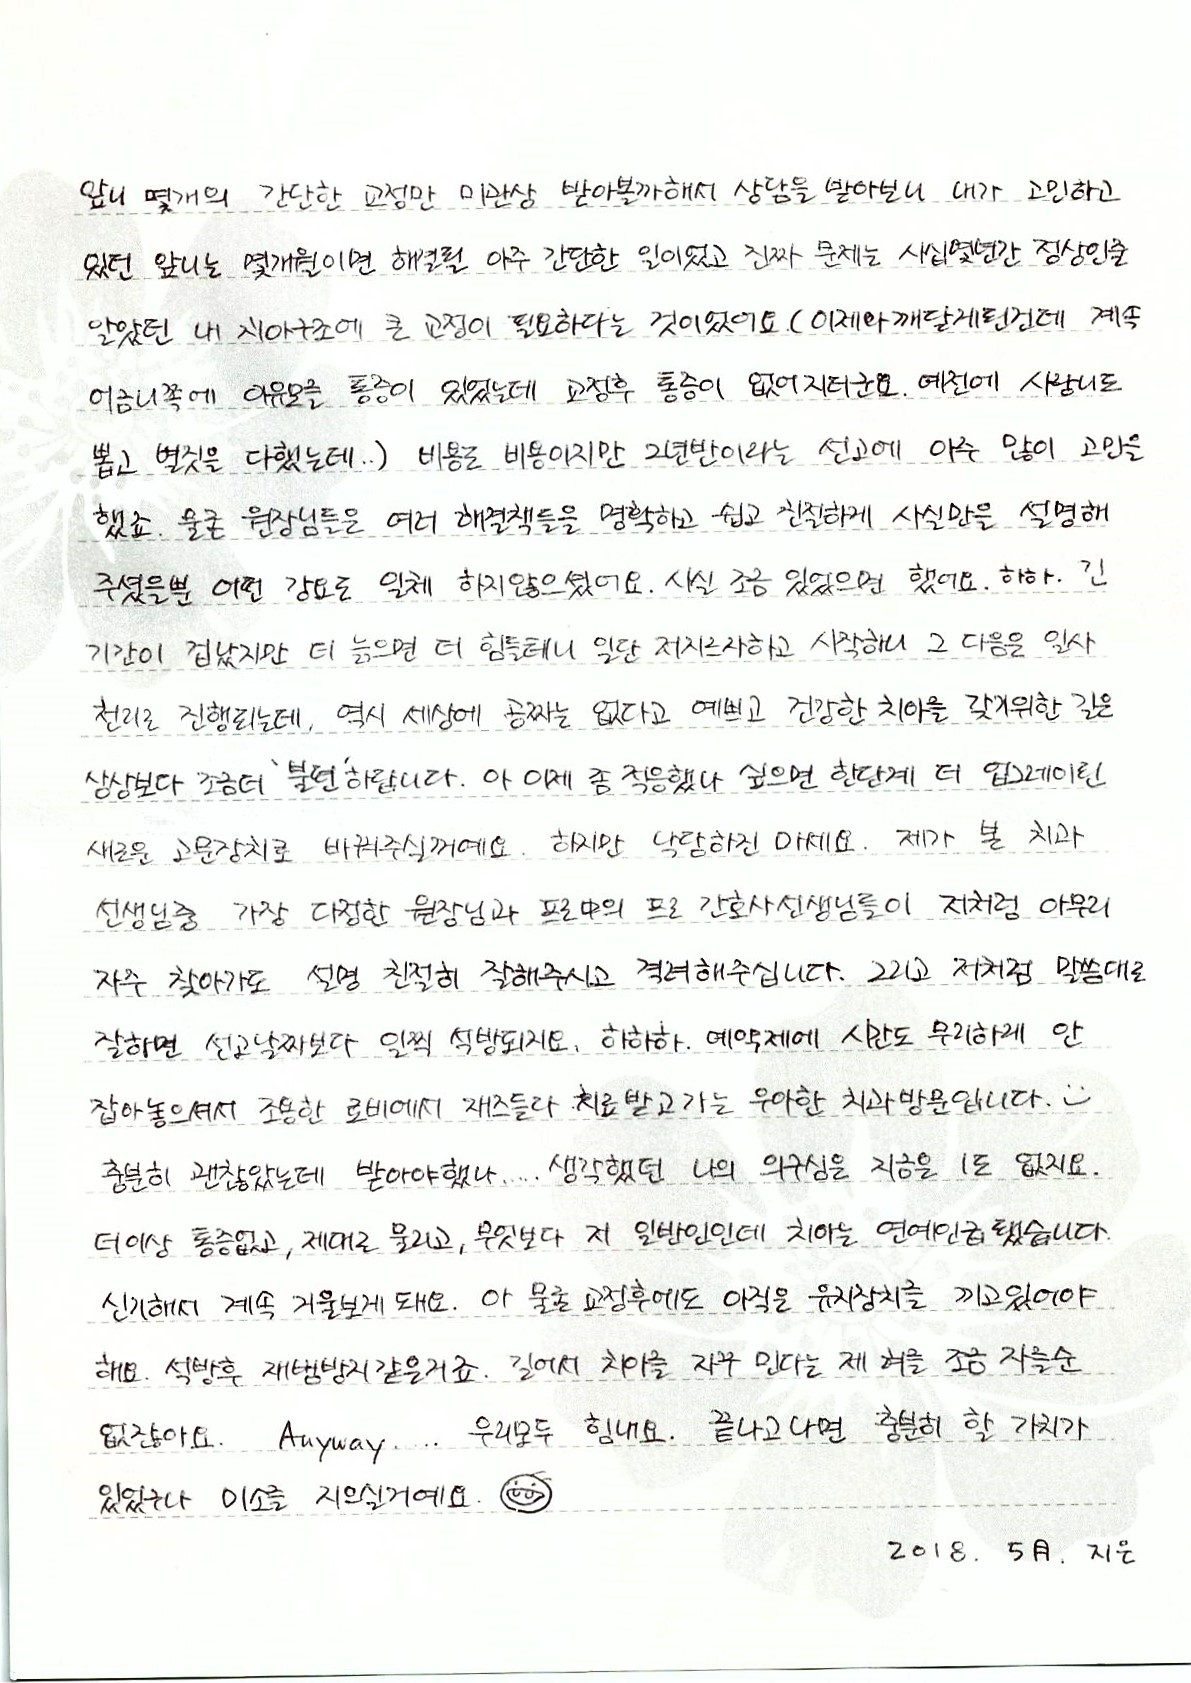 앞니 몇개의 간단한 교정만 미관상 받아볼까해서 상담을 받아보니 내가 고민하고
있던 앞니는 몇개월이면 해결될 아주 간단한 일이었고 진짜 문제는 사십몇년간 정상인줄
알았던 내 치아구조에 큰 교정이 필요하다는 것이었어요 (이제와 깨달게된건데 계속
어금니쪽에 이유모를 통증이 있었는데 교정후 통증이 없어지더군요. 예전에 사랑니도
뽑고 별짓을 다했는데..) 비용도 비용이지만 2년반이라는 선고에 아주 많이 고민을
했죠. 물론 원장님들은 여러 해결책들을 명확하고 쉽고 친절하게 사실만을 설명해
주셨을뿐 어떤 강요도 일체 하지않으셨어요. 사실 조금 있었으면 했어요. 하하. 긴
기간이 겁났지만 더 늙으면 더 힘들테니 일단 저지르자하고 시작하니 그 다음은 일사
천리로 진행되는데, 역시 세상에 공짜는 없다고 예쁘고 건강한 치아를 갖기위한 길은
상상보다 조금더 '불편'하답니다. 아 이제 좀 적응했나 싶으면 한단계 더 업그레이된
새로운 고문장치로 바꿔주실꺼예요. 하지만 낙담하진 마세요. 제가 본 치과
선생님중 가장 다정한 원장님과 프로中의 프로 간호사선생님들이 저처럼 아무리
자주 찾아가도 설명 친절히 잘해주시고 격려해주십니다. 그리고 저처럼 말씀대로
잘하면 선고날짜보다 일찍 석방되지요. 하하하. 예약제에 시간도 무리하게 안
잡아놓으셔서 조용한 로비에서 재즈들다 치료받고가는 우아한 치과방문입니다. :)
충분히 괜찮았는데 받아야했나..... 생각했던 나의 의구심은 지금은 1도 없지요.
더이상 통증없고, 제대로 물리고, 무엇보다 저 일반인인데 치아는 연예인급 됐습니다.
신기해서 계속 거울보게 돼요. 아 물론 교정후에도 아직은 유지장치를 끼고있어야
해요. 석방후 재범방지같은거죠. 길어서 치아를 자꾸 민다는 제 혀를 조금 자를순
없잖아요. Anyway..... 우리모두 힘내요. 끝나고나면 충분히 할 가치가
있었구나 미소를 지으실거예요.
2018. 5月. 지은